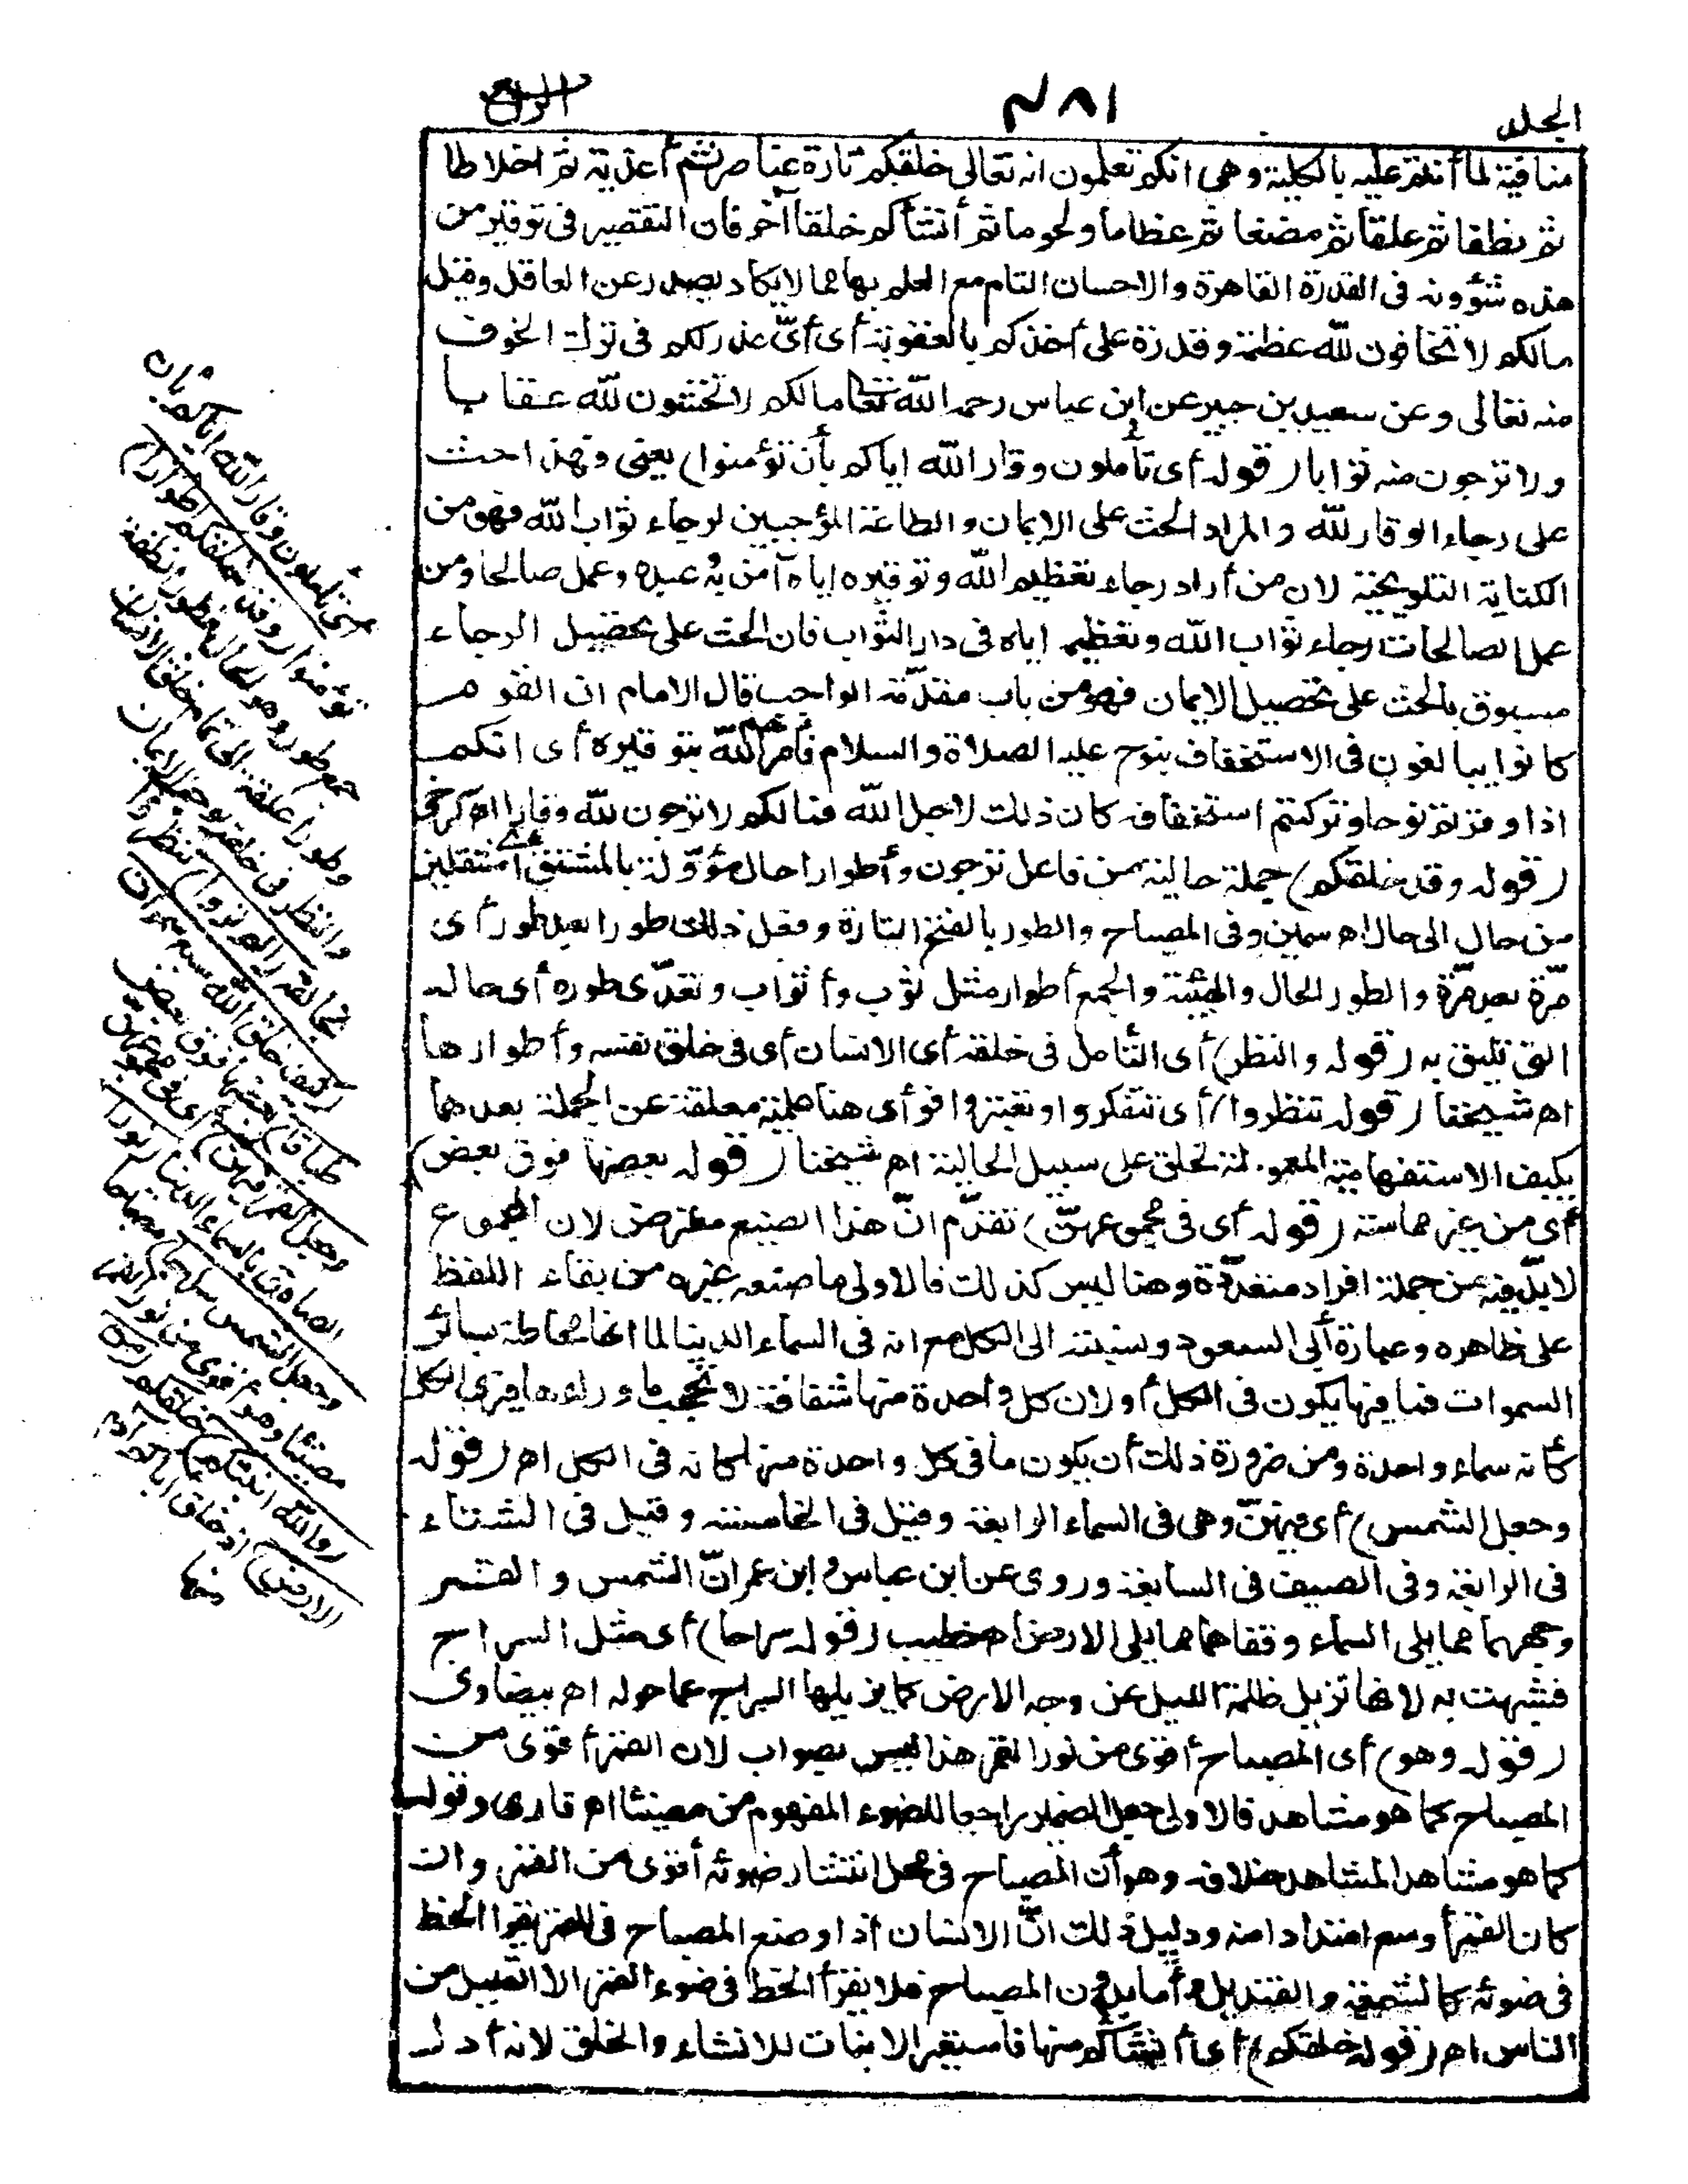 الجلد
٤٨١
الرابع
منافية لما أنتم عليه بالكلية وهي انكم تعلمون انه تعالى خلقكم تارة عناصر ثم أغذية ثم اخلاطا
ثم نطفا ثم علقا ثم مضغا ثم عظاما ولحوما ثم أنشأكم خلقا آخر فان التقصير في توقير من
هذه شؤونه في القدرة القاهرة والاحسان التام مع العلم بها مما لا يكاد يصدر عن العاقل وقيل
مالكم لا تخافون لله عظمة وقدرة على أخذكم بالعقوبة أي أيّ عذر لكم في ترك الخوف
منه تعالى وعن سعيد بن جبير عن ابن عباس رحمه الله تعالى مالكم لا تخشون لله عقابا
ولا ترجون منه ثوابا (قوله أي تأملون وقار الله اياكم بأن تؤمنوا) يعني وهذا حث
على رجاء الوقار لله والمراد الحث على الايمان والطاعة المؤجبين لرجاء ثواب الله فهو من
الكناية التلويحية لان من أراد رجاء تعظيم الله وتوقيره اياه آمن به عبده وعمل صالحا ومن
عمل الصالحات رجاء ثواب الله وتعظيمه اياه في دار الثواب فان الحث على تحصيل الرجاء
مسبوق بالحث على تحصيل الايمان فهو من باب مقدّمة الواجب قال الامام ان القوم
كانوا يبالغون في الاستخفاف بنوح عليه الصلاة والسلام فأمرهم الله بتوقيره أي انكم
اذا وقرتم نوحا وتركتم استخفافه كان ذلك لاجل الله فمالكم لا ترجون لله وقارا اه كرخي
(قوله وقد خلقكم) جملة حالية من فاعل ترجون وأطوارا حال مؤوّلة بالمشتق أي منتقلين
من حال الى حال اه سمين وفي المصباح والطور بالفتح التارة وفعل ذلك طورا بعد طور أي
مرّة بعد مرّة والطور الحال والهيئة والجمع أطوار مثل ثوب وأثواب وتعدّى طوره أي حاله
التي تليق به (قوله والنظر) أي التأمل في خلقه أي الانسان أي في خلق نفسه وأطوارها
اه شيخنا (قوله تنظروا) أي تتفكروا وتعتبروا فرأى هنا علمية معلقة عن الجملة بعدها
بكيف الاستفهامية المعمولة لخلق على سبيل الحالية اه شيخنا (قوله بعضها فوق بعض)
أي من غير مماسة (قوله أي في مجموعهنّ) تقدّم انّ هذا الصنيع معترض لان المجموع
لابدّ فيه من جملة افراد متعدّدة وهنا ليس كذلك فالاولى ما صنعه غيره من بقاء اللفظ
على ظاهره وعبارة أبي السعود ونسبته الى الكل مع انه في السماء الدنيا لما انها محاطة بسائر
السموات فما فيها يكون في الكل أو لان كل واحدة منها شفافة لا تحجب ما وراءها فيرى الكل
كأنه سماء واحدة ومن ضرورة ذلك أن يكون ما في كل واحدة منها كانه في الكل اه (قوله
وجعل الشمس) أي فيهنّ وهي في السماء الرابعة وقيل في الخامسة وقيل في الشتاء
في الرابعة وفي الصيف في السابعة وروى عن ابن عباس وابن عمر انّ الشمس والقمر
وجههما مما يلي السماء وقفاهما مما يلي الارض اه خطيب (قوله سراجا) أي مثل السراج
فشبهت به لانها تزيل ظلمة الليل عن وجه الارض كما يزيلها السراج عما حوله اه بيضاوي
(قوله وهو) أي المصباح أقوى من نور القمر هذا ليس بصواب لان القمر أقوى من
المصباح كما هو مشاهد فالاولى جعل الضمير راجعا للضوء المفهوم من مضيئا اه قارى وقوله
كما هو مشاهد المشاهد خلافه وهو أن المصباح في محل انتشار ضوئه أقوى من القمر وان
كان القمر أوسع امتدادا منه ودليل ذلك انّ الانسان اذا وضع المصباح في القمر يقرأ الخط
في ضوئه كالشمعة والقنديل وأما بدون المصباح فلا يقرأ الخط في ضوء القمر الا القليل من
الناس اه (قوله خلقكم) أي أنشأكم منها فاستعير الانبات للانشاء والخلق لانه أدل
أي تأملون وقار الله اياكم بأن
تؤمنوا (وقد خلقكم أطوارا)
جمع طور وهو الحال فطورا نطفة
وطورا علقة الى تمام خلق الانسان
والنظر في خلقه يوجب الايمان
بخالقه (ألم تروا) تنظروا
(كيف خلق الله سبع سموات
طباقا) بعضها فوق بعض
(وجعل القمر فيهن) أي في مجموعهن
الصادق بالسماء الدنيا (نورا
وجعل الشمس سراجا) مصباحا
مضيئا وهو أقوى من نور القمر
(والله أنبتكم) خلقكم (من
الارض) اذ خلق أباكم آدم
منها